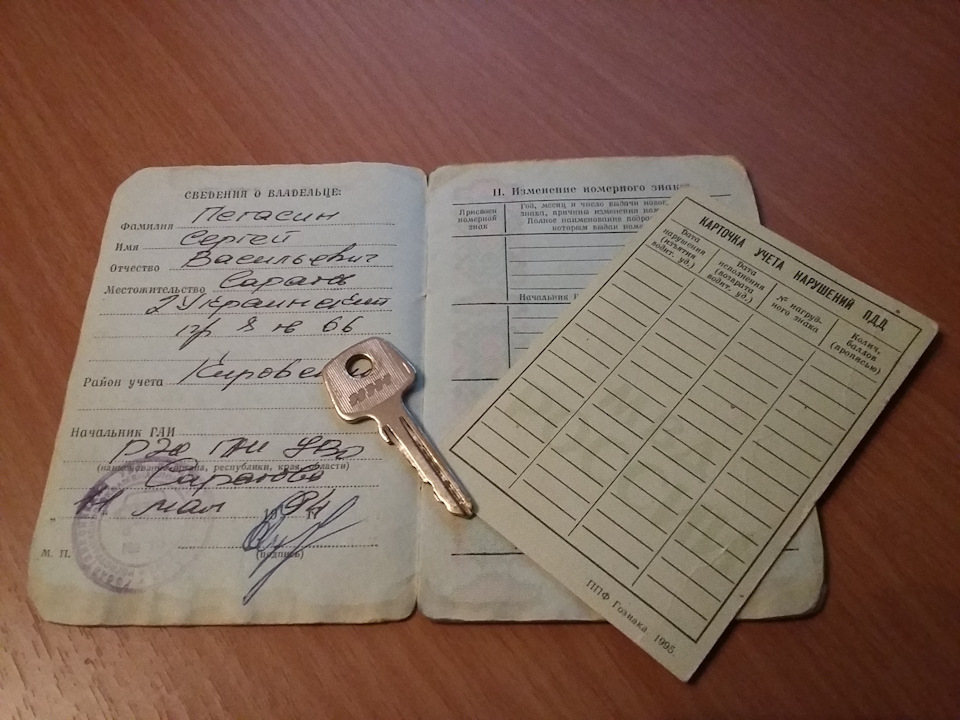 СВЕДЕНИЯ О ВЛАДЕЛЬЦЕ:
Фамилия Пегасин
Имя Сергей
Отчество Васильевич
Местожительство Саратов
2 Украинский
пр 8 кв 66
Район учета Кировский
Начальник ГАИ
РЭО ГАИ УВД
(наименование органа, республики, края, области)
Саратова
мая 1994
М. П. (подпись)
II. Изменение номерного знака
Присвоен
номерной
знак
Год, месяц и число выдачи нового
знака, причина изменения
Полное наименование
которым выдан
Начальник
КАРТОЧКА УЧЕТА НАРУШЕНИЙ ПДД
Дата
нарушения
(изъятия
водит. уд.)
Дата
исполнения
(возврата
водит. уд.)
№ нагруд-
ного знака
Колич.
баллов
(прописью)
ППФ Гознака 1995.